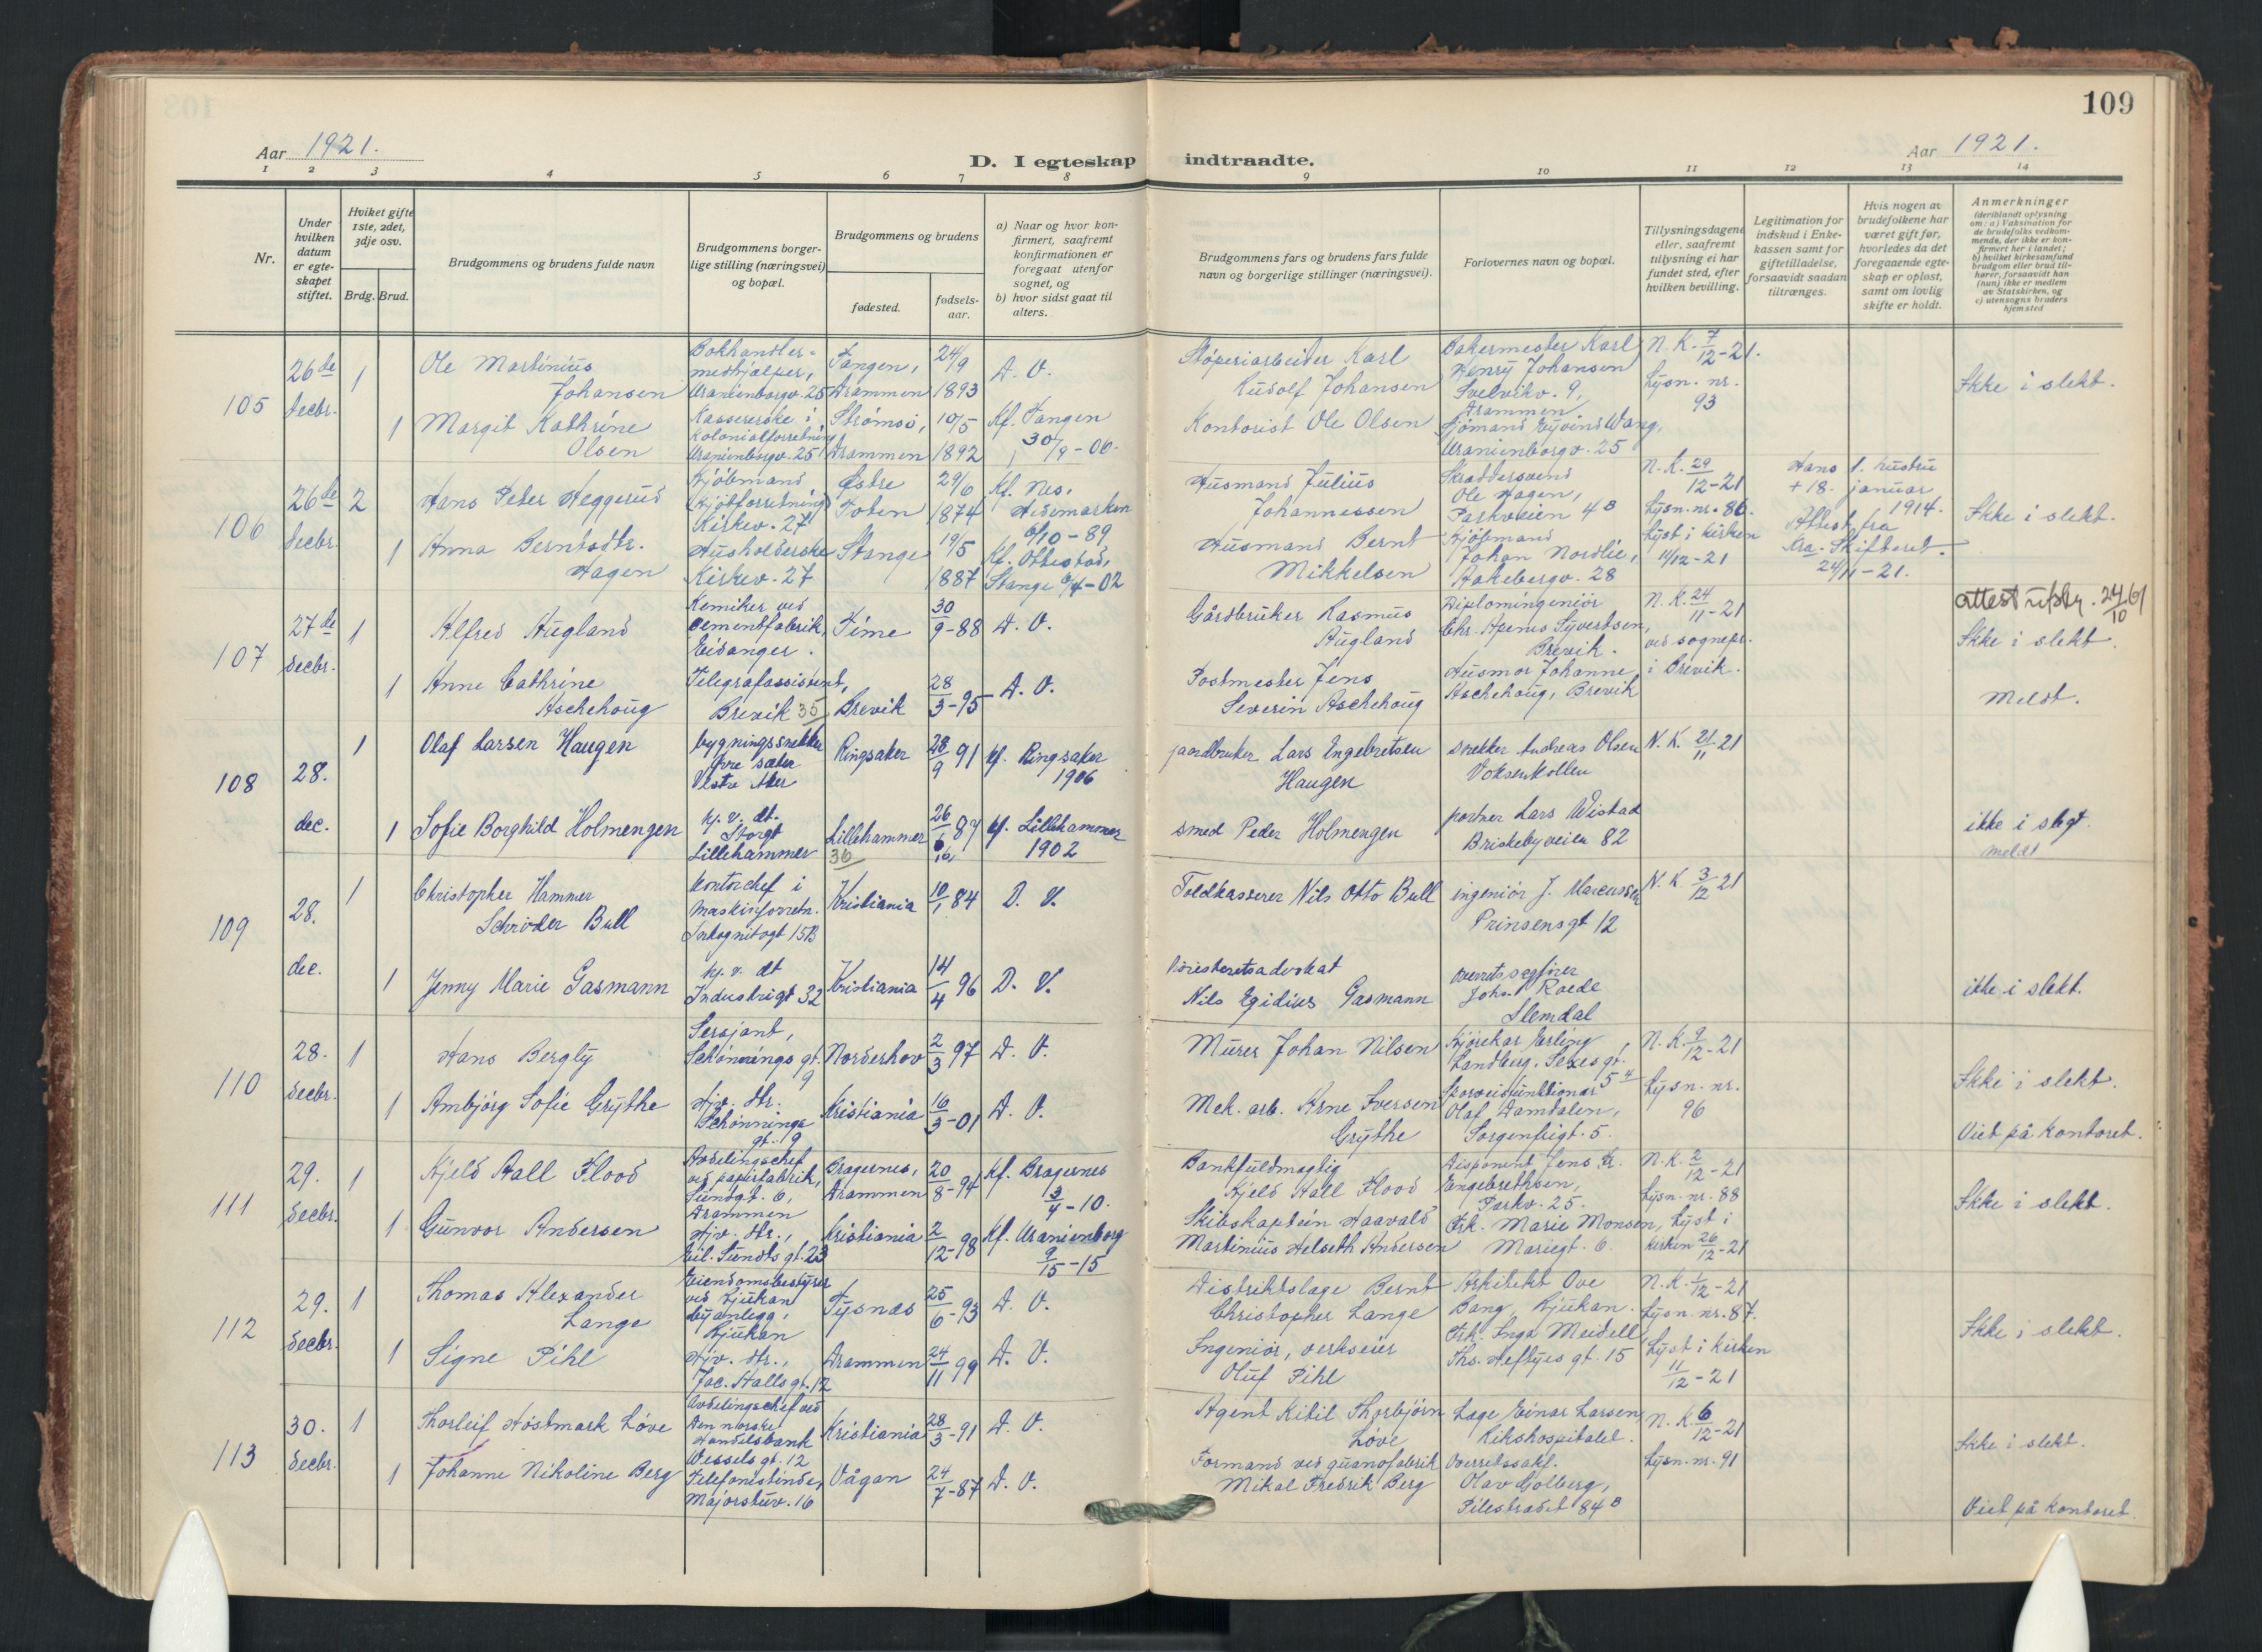 109
Aar 1921.
D. I egteskap indtraadte.
Aar 1921.
1 2 3 4 5 6 7 8 9 10 11 12 13 14
Nr.
Under hvilken datum er egteskapet stiftet.
Hviket gifte 1ste, 2det, 3dje osv.
Brdg. Brud.
Brudgommens og brudens fulde navn
Brudgommens borgerlige stilling (næringsvei) og bopæl.
Brudgommens og brudens
fødested.
fødselsaar.
a) Naar og hvor konfirmert, saafremt konfirmationen er foregaat utenfor sognet, og
b) hvor sidst gaat til alters.
Brudgommens fars og brudens fars fulde navn og borgerlige stillinger (næringsvei).
Forlovernes navn og bopæl.
Tillysningsdagene eller, saafremt tillysning ei har fundet sted, efter hvilken bevilling.
Legitimation for indskud i Enkekassen samt for giftetilladelse, forsaavidt saadan tiltrænges.
Hvis nogen av brudefolkene har været gift før, hvorledes da det foregaaende egteskap er opløst, samt om lovlig skifte er holdt.
Anmerkninger
(deriblandt oplysning om: a) Vaksination for de brudefolks vedkommende, der ikke er konfirmert her i landet; b) hvilket kirkesamfund brudgom eller brud tilhører, forsaavidt han (hun) ikke er medlem av Statskirken, og c) utensogns bruders hjemsted
105
26de decbr.
1
Ole Martinius Johansen
Bokhandler-medhjælper, Uranienborgv. 25
Tangen, Drammen
24/9 1893
D. V.
Støperiarbeider Karl Rudolf Johansen
Bakermester Karl Henry Johansen Svelvikv. 9, Drammen.
N.K. 7/12-21.
Lysn. nr. 93
Ikke i slekt.
1
Margit Kathrine Olsen
Kassererske i kolonialforretning Uranienborgv. 25
Strømsø, Drammen
10/5 1892
Kf. Tangen 30/9-06.
Kontorist Ole Olsen
Sjømand Eyvind Wang, Uranienborgv. 25
106
26de decbr.
2
Hans Peter Heggerud
Kjøbmand (Kjøtforretning) Kirkev. 27
Østre Toten
29/6 1874
Kf. Nes, Hedemarken 6/10-89
Husmand Julius Johannessen
Skræddersvend Ole Hagen, Parkveien 4B
N.K. 29/12-21
Lysn. nr. 86.
Lyst i kirken 11/12-21
Hans 1. hustru + 18. januar 1914.
Attest fra Kra. Skifteret. 24/11-21.
Ikke i slekt.
1
Anna Berntsdtr. Hagen
Husholderske Kirkev. 27
Stange
19/5 1887
Kf. Ottestad, Stange 6/4-02
Husmand Bernt Mikkelsen
Kjøbmand Johan Nordlie, Aakebergv. 28
107
27de decbr.
1
Alfred Augland
Kemiker ved cementfabrik, Eidanger.
Time
30/9-88
D. V.
Gårdbruker Rasmus Augland
Diplomingeniør Chr. Apenes Syvertsen, Brevik.
N.K. 24/11-21
ved sognepr. i Brevik.
attest utsten. 24/10 61
Ikke i slekt.
1
Anne Cathrine Aschehoug
Telegrafassistent, Brevik 35
Brevik
28/3-95
D. V.
Postmester Jens Severin Aschehoug
Husmor Johanne Aschehoug, Brevik
Meldt.
108
28. dec.
1
Olaf Larsen Haugen
bygningssnekker Øvre sæter Vestre Aker
Ringsaker
28/9 91
kf. Ringsaker 1906
gaardbruker Lars Engebretsen Haugen
snekker Andreas Olsen Voksenkollen
N.K. 21/11 21
1
Sofie Borghild Holmengen
hj. v. dt. Storgt Lillehammer
Lillehammer 36
26/6 87
kf. Lillehammer 1902
smed Peder Holmengen
portner Lars Wistad Briskebyveien 82
ikke i slegt.
meldt
109
28. dec.
1
Christopher Hammer Schrøder Bull
kontorchef i maskinforretn. Inkognitogt 15B
Kristiania
10/1 84
D. V.
Toldkasserer Nils Otto Bull
ingeniør J. Marcussen Prinsensgt 12
N.K. 3/12 21
1
Jenny Marie Gasmann
hj. v. dt Industrigt 32
Kristiania
14/4 96
D. V.
Høiesteretsadvokat Nils Egidius Gasmann
overretssagfører Johs. Roede Slemdal
ikke i slekt.
110
28. decbr.
1
Hans Bergly
Sersjant, Schønnings gt. 9
Norderhov
2/3 97
D. V.
Murer Johan Nilsen
Kjørekar Erling Landberg, Sexesgt. 5 4
N.K. 9/12-21
Lysn. nr. 96
Ikke i slekt.
1
Ambjørg Sofie Grythe
Hjv. dtr. Schønnings gt. 9
Kristiania
16/3-01
D. V.
Mek. arb. Arne Iversen Grythe
Sporveisfunktionær Olaf Damdalen, Sorgenfrigt. 5.
Viet på kontoret.
111
29. decbr.
1
Kjeld Stall Flood
Avdelingschef ved papirfabrik, Sundgt. 6, Drammen
Bragernes, Drammen
20/8-94
Kf. Bragernes 3/4-10.
Bankfuldmægtig Kjeld Stall Flood
Disponent Jens Kr. Engebrethsen, Parkv. 25.
N.K. 2/12-21
Lysn. nr. 88
Lyst i kirken 26/12-21
Ikke i slekt.
1
Gunvor Andersen
Hjv. dtr., Eil. Sundts gt. 23
Kristiania
2/12-98
Kf. Uranienborg 9/15-15
Skibskaptein Haavald Martinius Helseth Andersen
Frk. Marie Monsen, Mariegt. 6.
112
29. decbr.
1
Thomas Alexander Lange
Eiendomsbestyrer ved Rjukan byanlegg, Rjukan
Tysnæs
25/6-93
D. V.
Distriktslæge Bernt Christopher Lange
Arkitekt Ove Bang, Rjukan.
N.K. 1/12-21
Lysn. nr. 87.
Lyst i kirken 11/12-21
Ikke i slekt.
1
Signe Pihl
Hjv. dtr., Jac. Aallsgt. 12
Drammen
24/11 99
D. V.
Ingeniør, verkseier Oluf Pihl
Frk. Inga Meidell Ths. Heftyes gt. 15
113
30. decbr.
1
Thorleif Høstmark Løve
Avdelingschef ved Den norske Handelsbank Wessels gt. 12
Kristiania
28/3-91
D. V.
Agent Kitil Thorbjørn Løve
Læge Einar Larsen, Rikshospitalet.
N.K. 6/12-21
Lysn. nr. 91
Ikke i slekt.
1
Johanne Nikoline Berg
Telefonistinde, Majorstuv. 16
Vågan
24/7-87
D. V.
Formand ved guanofabrik Mikal Fredrik Berg
Overretssakf. Olav Golberg, Pilestrædet 84B
Viet på kontoret.